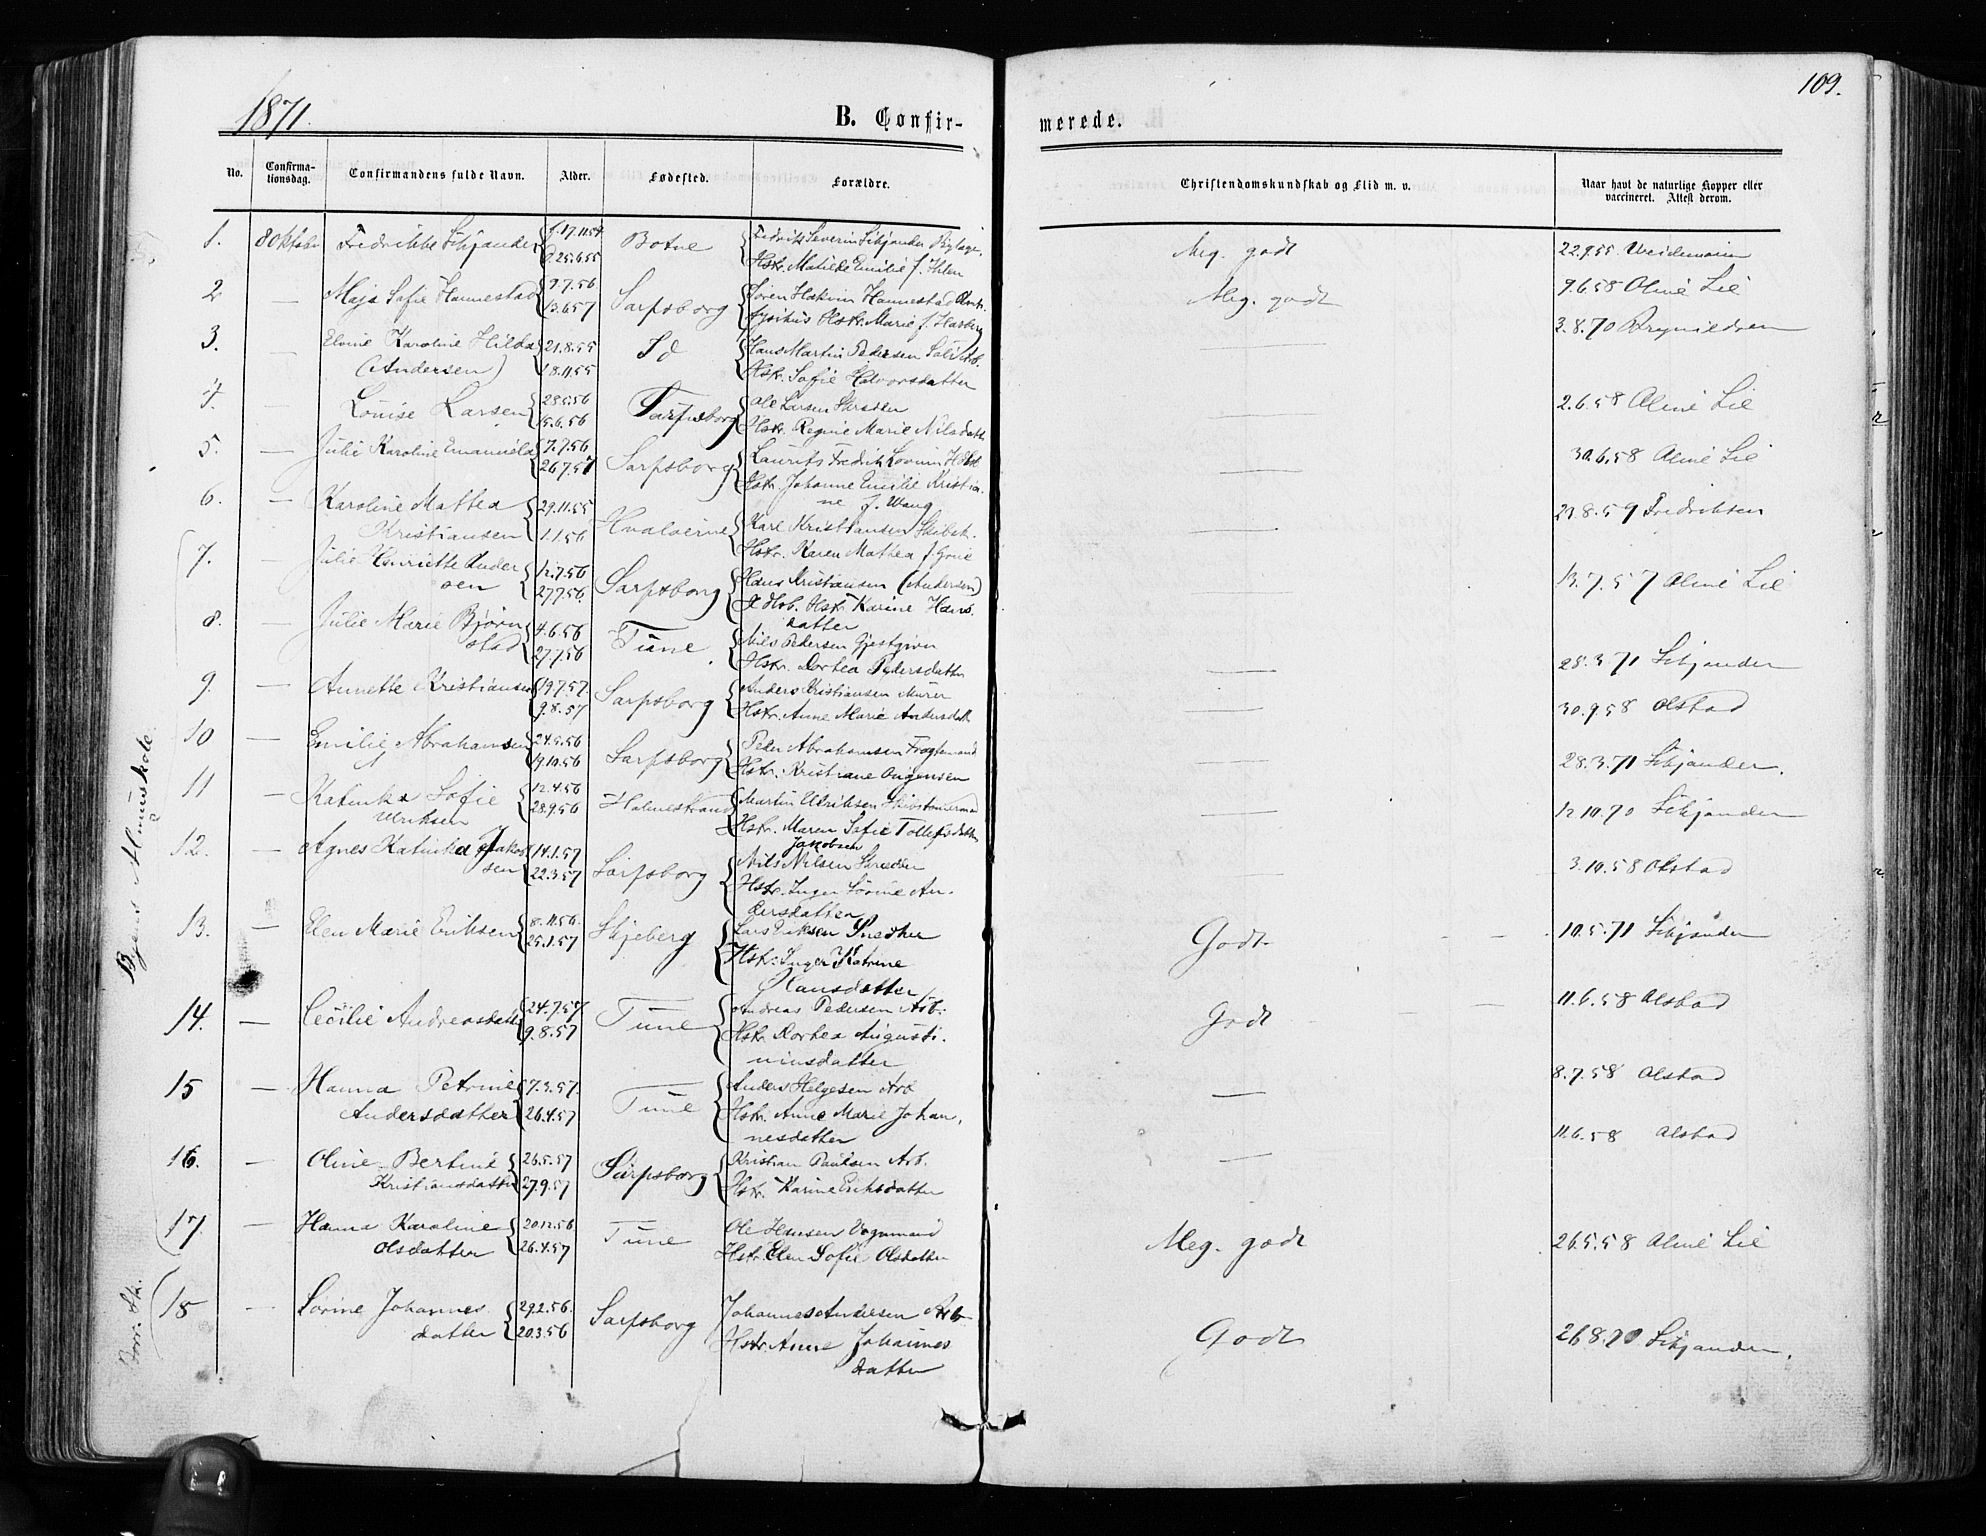 109.
1871.
B. Confir-
merede.
No.
Confirma-
tionsdag.
Confirmandens fulde Navn.
Alder.
Fødested.
Forældre.
Christendomskundskab og Flid m. v.
Naar havt de naturlige Kopper eller
vaccineret. Attest derom.
1. 8 Oktober Fredrikke Siljander f. 17.11.54 Botne Fredrik Severin Siljander
d. 25.6.55 Hstr. Matilde Emilie f. Ihlen
Meg. godt 22.9.55
2 — Maja Sofie Hannestad 9.7.56 Sarpsborg Søren Hannestad
13.6.57 fysikus Hstr. Marie f.
Meg. godt 9.6.58 Aline Lie
3. — Elvine Karoline Hilda 21.8.55 Id Hans Martin Pedersen Arb.
(Andersen) 18.11.55 Hstr. Sofie Halvorsdatter
— 3.8.70 Brynildsen
4. — Louise Larsen 28.5.56 Sarpsborg Ole Larsen Skrædder
15.6.56 Hstr. Regine Marie Nilsdatter
— 2.6.58 Aline Lie
5. — Julie Karoline Emanuelda 7.7.56 Sarpsborg Laurits Fredrik Holst
26.7.57 Hstr. Johanne Emilie Kristia-
ne f. Wang
— 30.6.58 Aline Lie
6. — Karoline Mathea 29.11.55 Hvaløerne Karl Kristiansen Skibsk.
Kristiansen 1.1.56 Hstr. Karen Mathea f.
— 23.8.59 Fredriksen
7. — Julie Henriette Ander 12.7.56 Sarpsborg Hans Kristiansen (Andersen)
sen 27.7.56. Hstr. Karine Hans
datter
— 13.7.57 Aline Lie
8. — Julie Marie Bjørn 4.6.56 Tune Nils Pedersen Gjestgiver
stad 27.7.56 Hstr. Dorthea Pedersdatter
— 28.3.71 Siljander
9. — Annette Kristiansen 19.7.57. Sarpsborg Anders Kristiansen Murer
9.8.57 Hstr. Anne Marie Andersdatt
— 30.9.58 Olstad
10 — Emilie Abrahamsen 24.5.56 Sarpsborg Peder Abrahamsen Fragtemand
19.10.56 Hstr. Kristiane
— 28.3.71 Siljander.
11 — Katinka Sofie 12.4.56 Holmestrand Martin Ulriksen Skibstømmermand
Ulriksen 28.9.56 Hstr. Maren Sofie Tollefsdatter
— 12.10.70 Siljander
12. — Agnes Katinka Jakob 14.1.57 Sarpsborg Jakobsen
Nils Nilsen Skrædder
sen 22.3.57 Hstr. Inger Sørine An-
dersdatter
— 3.10.58 Olstad
13. — Elen Marie Eriksen 8.11.56. Skjeberg Lars Eriksen Snedker
25.1.57 Hstr. Inger Katrine
Hansdatter
Godt — — 10.5.71 Siljander
14. — Cecilie Andreasdatter 24.7.57 Tune Andreas Pedersen Arb.
9.8.57 Hstr. Dorthea Augusti-
niusdatter
Godt — 11.6.58 Olstad
15 — Hanna Petrine 7.3.57. Tune Anders Helgesen Arb
Andersdatter 26.4.57 Hstr. Anne Marie Johan-
nesdatter
— 8.7.58 Olstad
16. — Oline Bertine 26.5.57 Sarpsborg Kristian Paulsen Arb.
Kristiansdatter 27.9.57 Hstr. Karine Eriksdatter
— 11.6.58 Olstad
17. — Hanna Karoline 20.12.56 Tune Ole Hansen Vognmand
Olsdatter 26.4.57 Hstr. Elen Sofie Olsdatter
Meg. godt 26.5.58 Aline Lie
18 — Sørine Johannes 29.2.56. Sarpsborg Johannes Andersen Arb
datter 20.3.56 Hstr. Anne Johannes
datter
Godt 26.8.70 Siljander.
Byens Almueskole.
Borr. Sk.